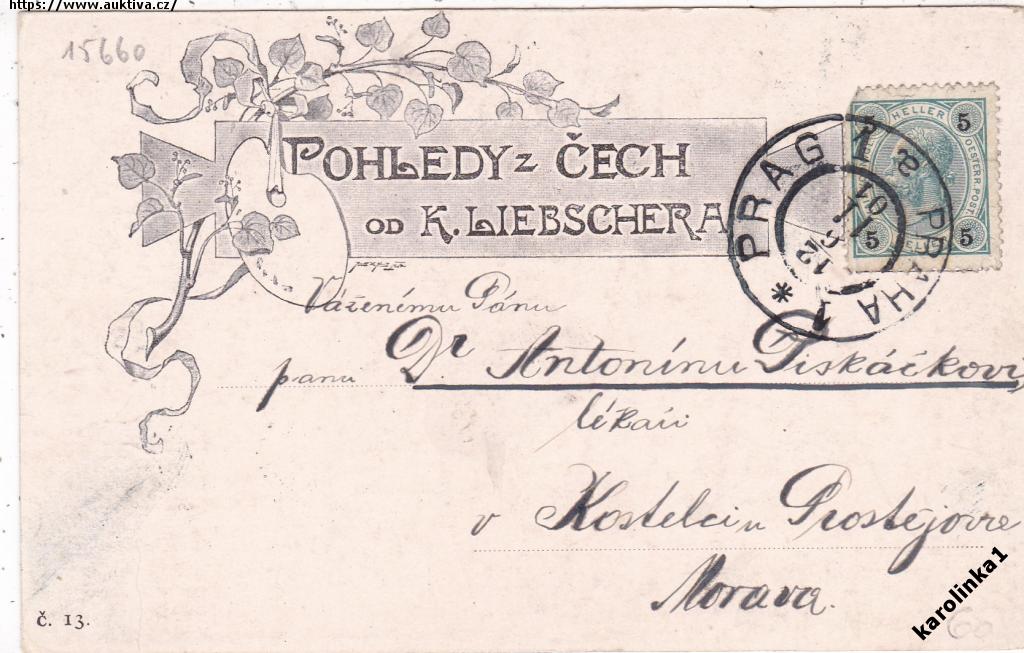 https://www.auktiva.cz/
15660
POHLEDY z ČECH
OD K. LIEBSCHERA
HELLER
5 5
OESTERR. POST.
5 5
PRAG 1 PRAHA 1
Váženému Pánu
panu Dr Antonínu Piskáčkovi,
lékaři
v Kostelci u Prostějova
Morava.
č. 13.
60
karolinka1